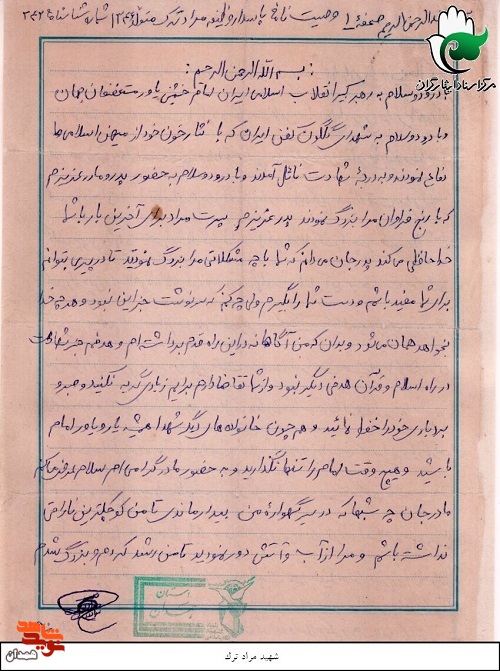 بسم الله الرحمن الرحیم صفحه 1 وصیت نامه پاسدار وظیفه مراد ترک متولد 1346 شماره شناسنامه 3426
مرکز اسناد ایثارگران
: بسم الله الرحمن الرحیم :
با درود و سلام به رهبر کبیر انقلاب اسلامی ایران امام خمینی یاور مستضعفان جهان
و با درود و سلام به شهدای گلگون کفن ایران که با نثار خون خود از میهن اسلامی ما
دفاع نمودند و به درجه شهادت نائل آمدند و با درود و سلام به حضور پدر و مادر عزیزم
که با رنج فراوان مرا بزرگ نمودند پدر عزیزم پسرت مراد برای آخرین بار با شما
خداحافظی می کند پدر جان می دانم که شما با چه مشکلاتی مرا بزرگ نمودید تا در پیری بتوانم
برای شما مفید باشم و دست شما را بگیرم ولی چه کنم که سرنوشت جز این نبود و هر چه خدا
بخواهد همان می شود و بدان که من آگاهانه در این راه قدم برداشته ام و هدفم جز شهادت
در راه اسلام و قرآن هدفی دیگر نبود و از شما تقاضا دارم برایم زیادی گریه نکنید و صبر و
بردباری خود را حفظ نمائید و هم چون خانواده های دیگر شهدا همیشه یار و یاور امام
باشید و هیچ وقت امام را تنها نگذارید و به حضور مادر گرامی ام سلام عرض میکنم
مادر جان چه شبها که در سر گهواره من بیدار ماندی تا من کوچکترین ناراحتی
نداشته باشم و مرا از آب و آتش دور نمودید تا من رشد کردم و بزرگ شدم
نوید شاهد
همدان
شهید مراد ترک